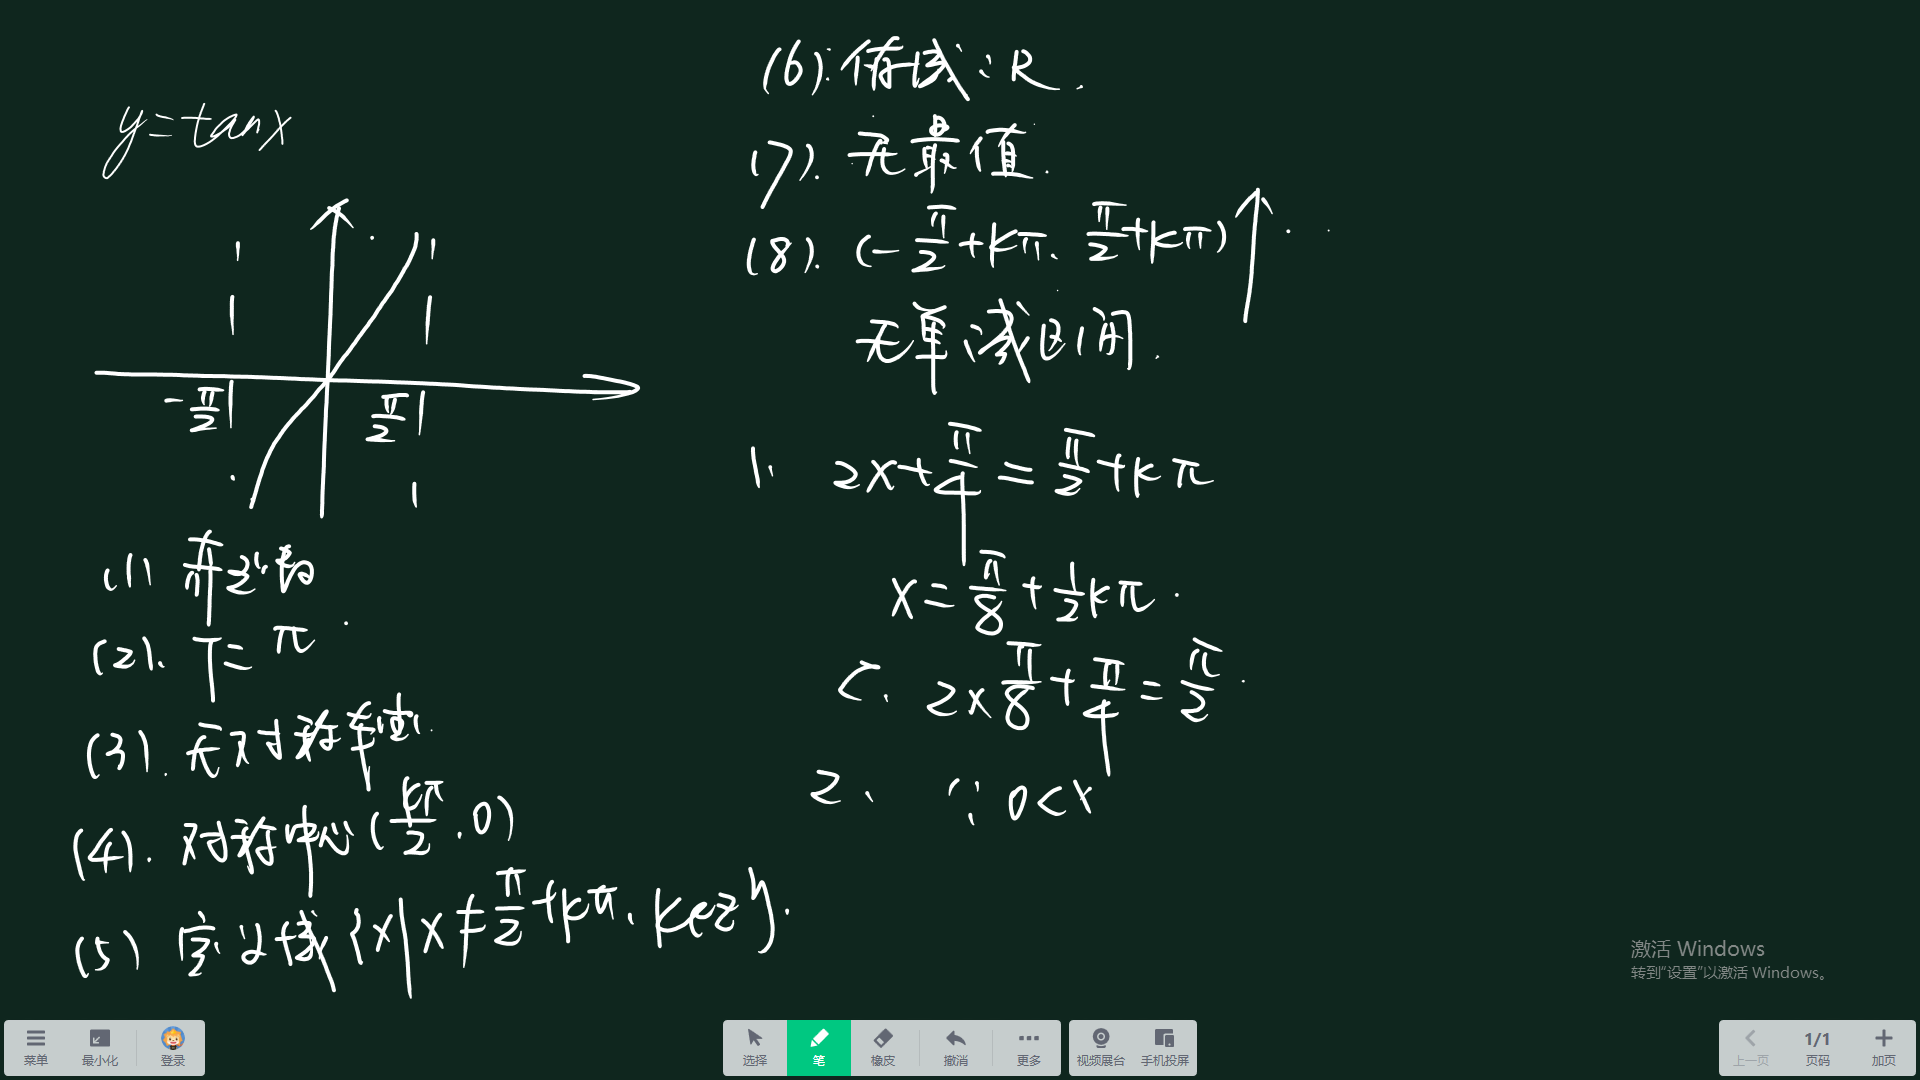 y=tanx
-π/2
π/2
(1) 奇函数
(2). T=π
(3). 无对称轴.
(4). 对称中心(kπ/2,0)
(5) 定义域{x|x≠π/2+kπ、k∈Z}.
(6). 值域:R.
(7). 无最值.
(8). (-π/2+kπ、π/2+kπ)↑.
无单减区间.
1、 2x+π/4=π/2+kπ
x=π/8+1/2kπ.
C、 2×π/8+π/4=π/2.
2、 ∵0<x
激活 Windows
转到“设置”以激活 Windows。
菜单 最小化 登录 选择 笔 橡皮 撤消 更多 视频展台 手机投屏 上一页 1/1 页码 加页